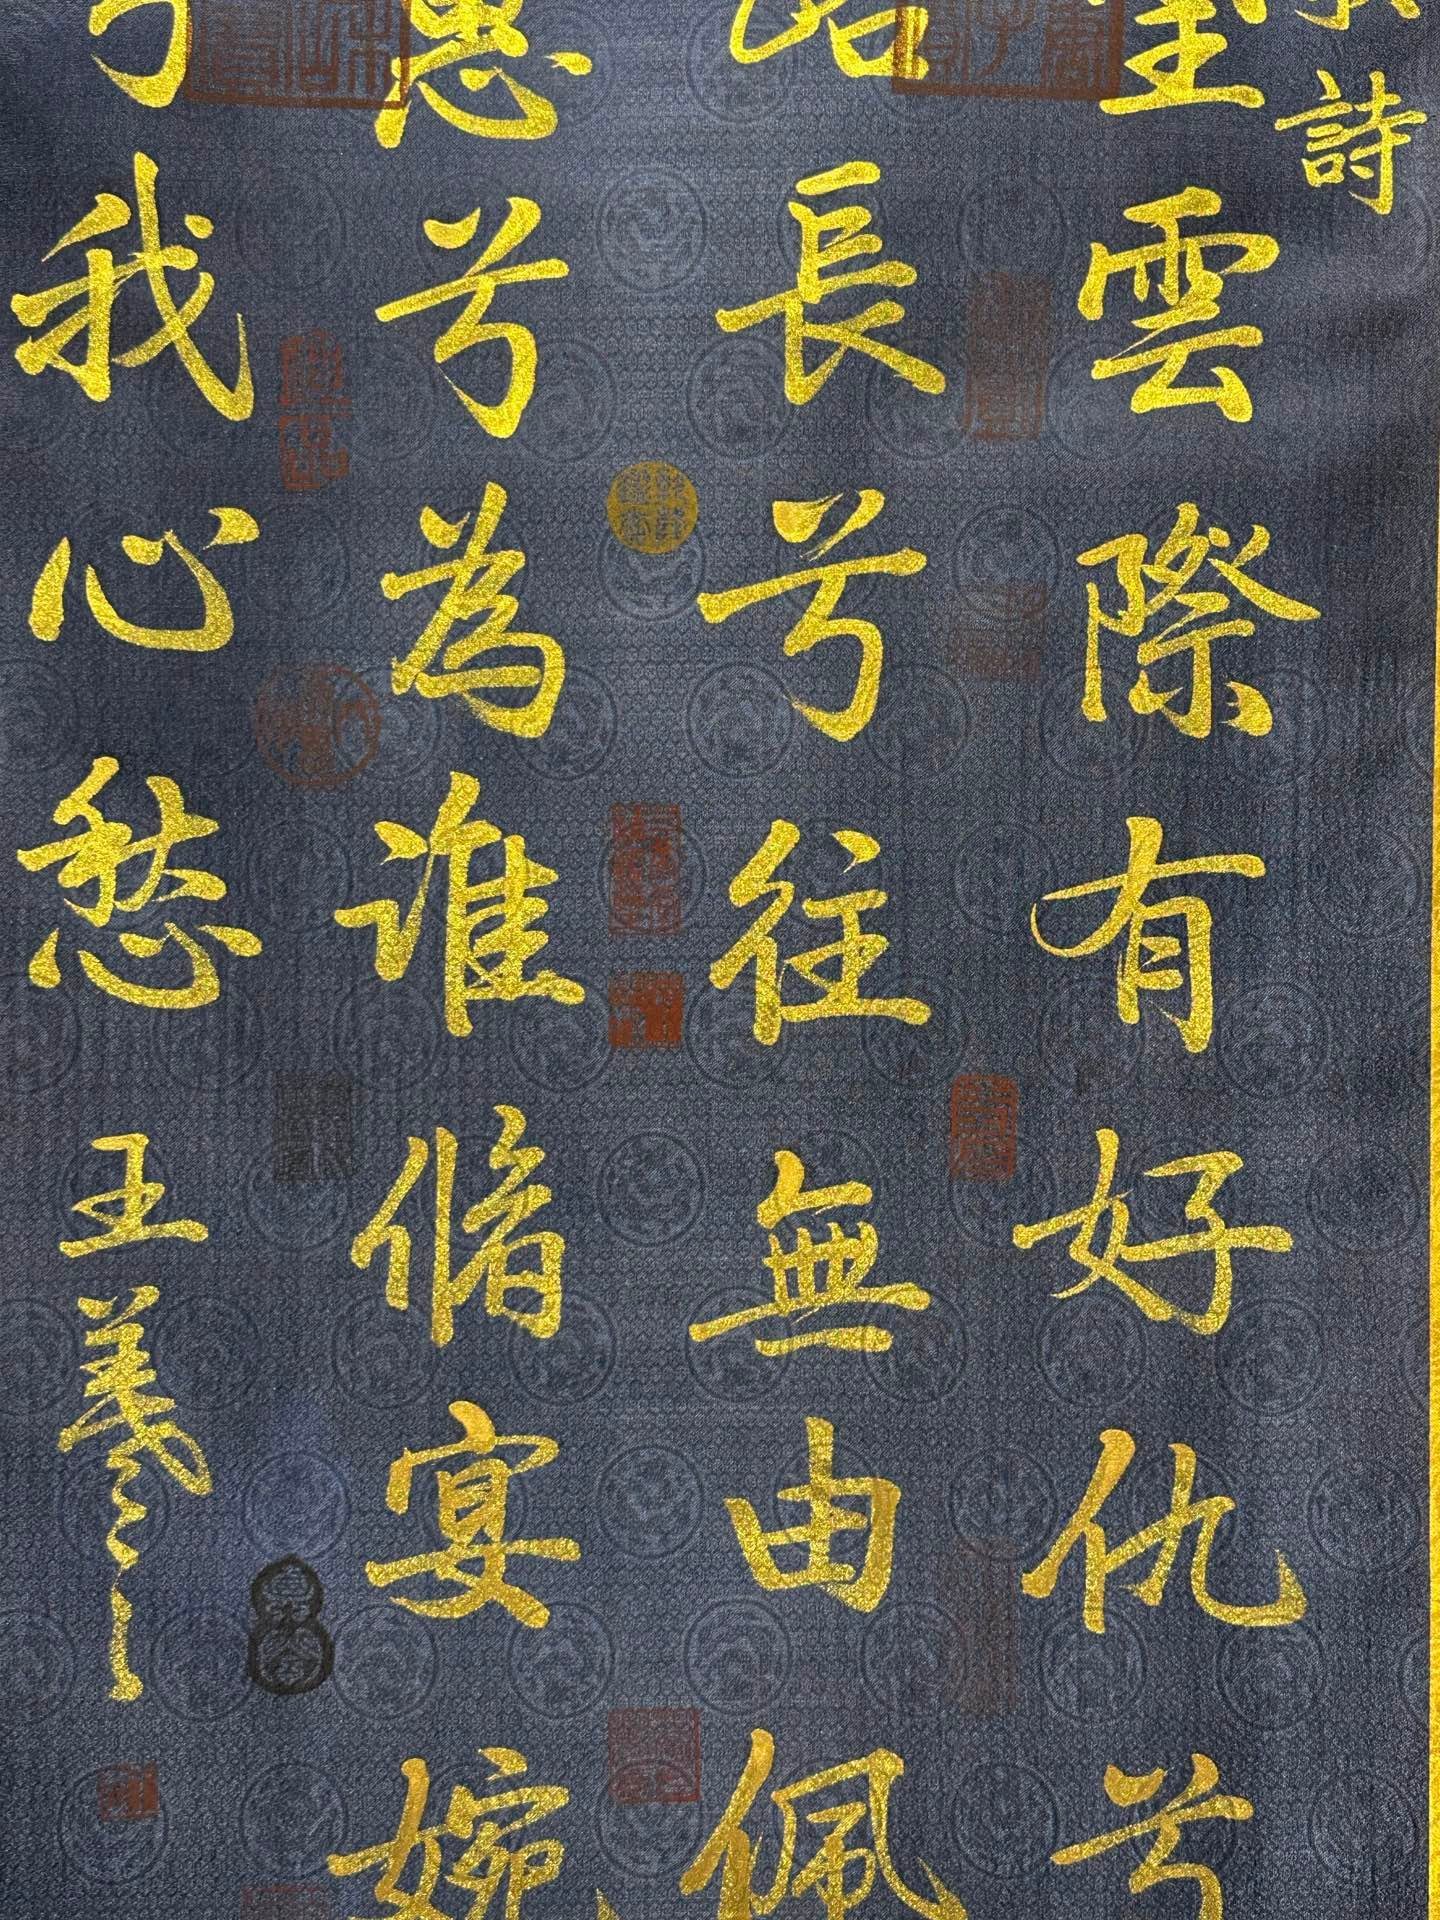 詩
望雲際有好仇兮
路長兮往無由佩
惠兮為誰脩宴婉
兮我心愁
王羲之